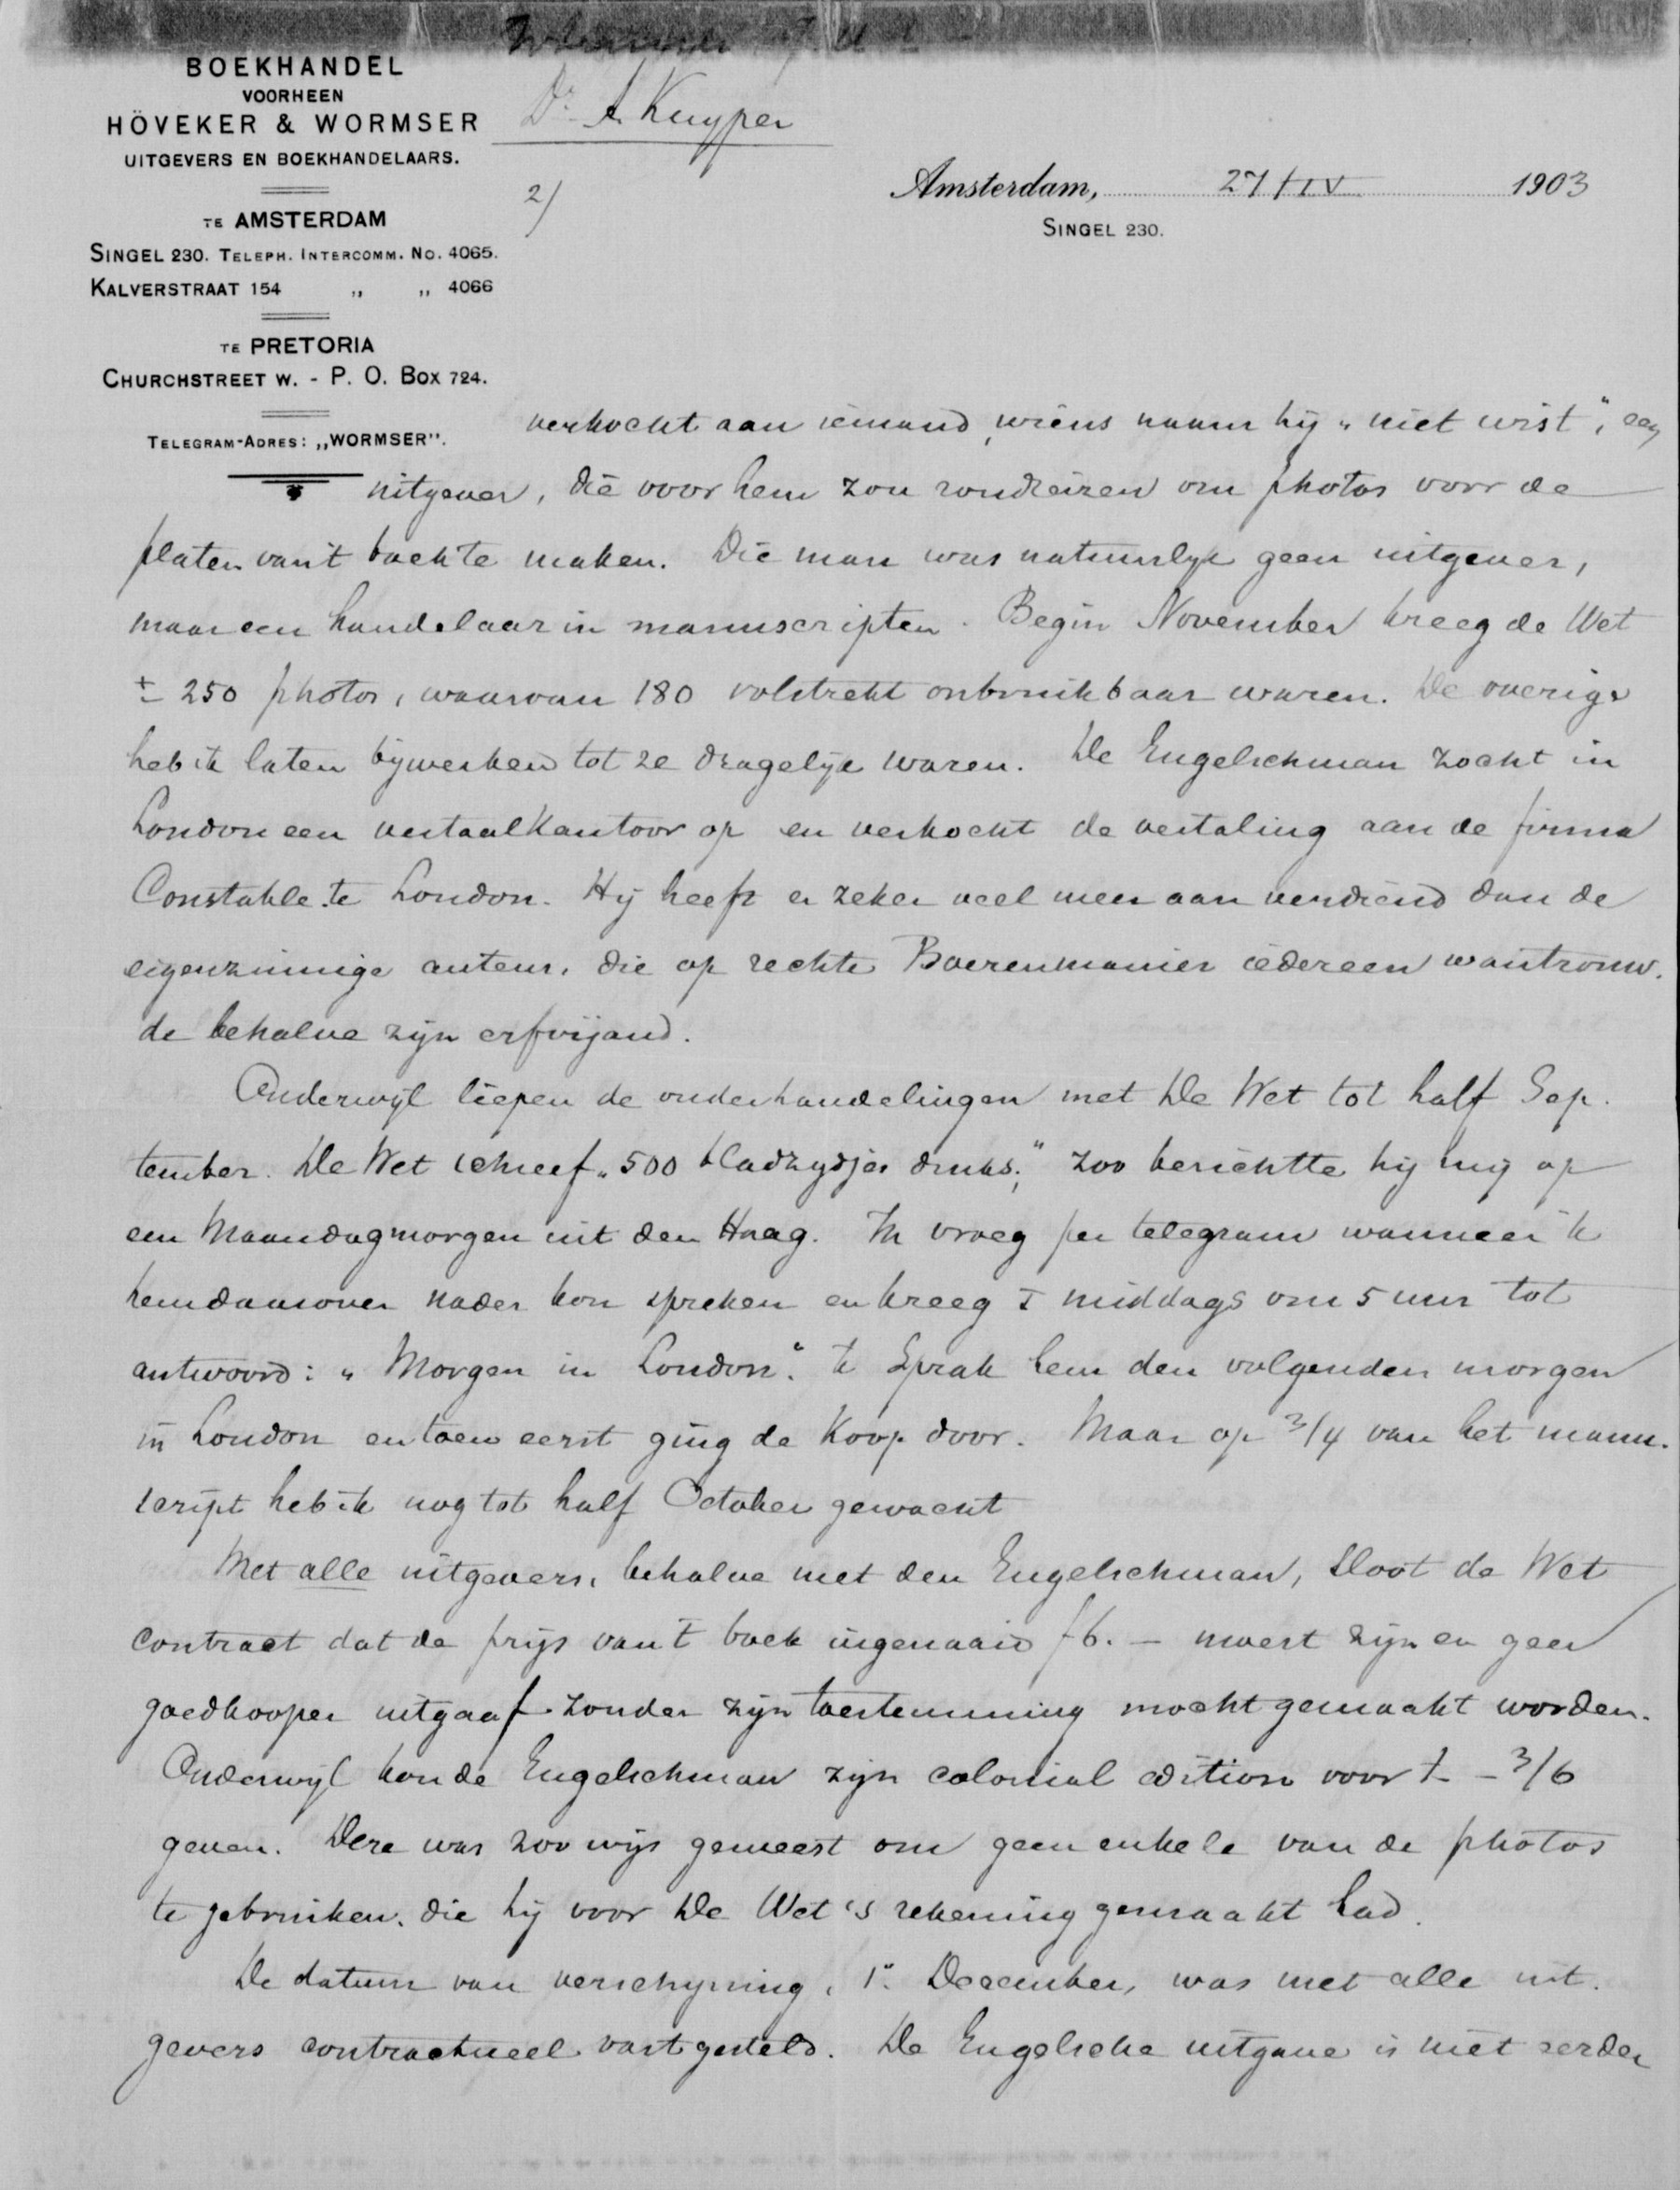 BOEKHANDEL
VOORHEEN
HÖVEKER & WORMSER
UITGEVERS EN BOEKHANDELAARS.
TE AMSTERDAM
SINGEL 230. TELEPH. INTERCOMM. No. 4065.
KALVERSTRAAT 154 „ „ 4066
TE PRETORIA
CHURCHSTREET W. - P. O. BOX 724.
TELEGRAM-ADRES: „WORMSER".
Dr. A. Kuyper
2/
Amsterdam, 27/IV 1903
SINGEL 230.
verkocht aan iemand, wiens naam hij „niet wist", een
uitgever, die voor hem zou rondreizen om photos voor de
platen van 't boek te maken. Die man was natuurlyk geen uitgever,
maar een handelaar in manuscripten. Begin November kreeg de Wet
± 250 photos, waarvan 180 volstrekt onbruikbaar waren. De overige
heb ik laten bijwerken tot ze dragelijk waren. De Engelschman zocht in
London een vertaalkantoor op en verkocht de vertaling aan de firma
Constable te London. Hij heeft er zeker veel meer aan verdiend dan de
eigenzinnige auteur, die op rechte Boerenmanier iedereen wantrouw-
de behalve zijn erfvijand.
Onderwijl liepen de onderhandelingen met De Wet tot half Sep-
tember. De Wet schreef „500 bladzydjes druks," zoo berichtte hij mij op
een Maandagmorgen uit den Haag. Ik vroeg per telegram wanneer ik
hem daarover nader kon spreken en kreeg 's middags om 5 uur tot
antwoord: „Morgen in London". Ik sprak hem den volgenden morgen
in London en toen eerst ging de koop door. Maar op 3/4 van het manu-
script heb ik nog tot half October gewacht
Met alle uitgevers, behalve met den Engelschman, sloot de Wet
contract dat de prijs van 't boek ingenaaid f 6.- moest zijn en geen
goedkooper uitgaaf zonder zijn toestemming mocht gemaakt worden.
Onderwijl kon de Engelschman zijn colonial edition voor - 3/6
geven. Deze was zoo wijs geweest om geen enkele van de photos
te gebruiken, die hij voor De Wet's rekening gemaakt had.
De datum van verschyning, 1° December, was met alle uit-
gevers contractueel vastgesteld. De Engelsche uitgave is niet eerder